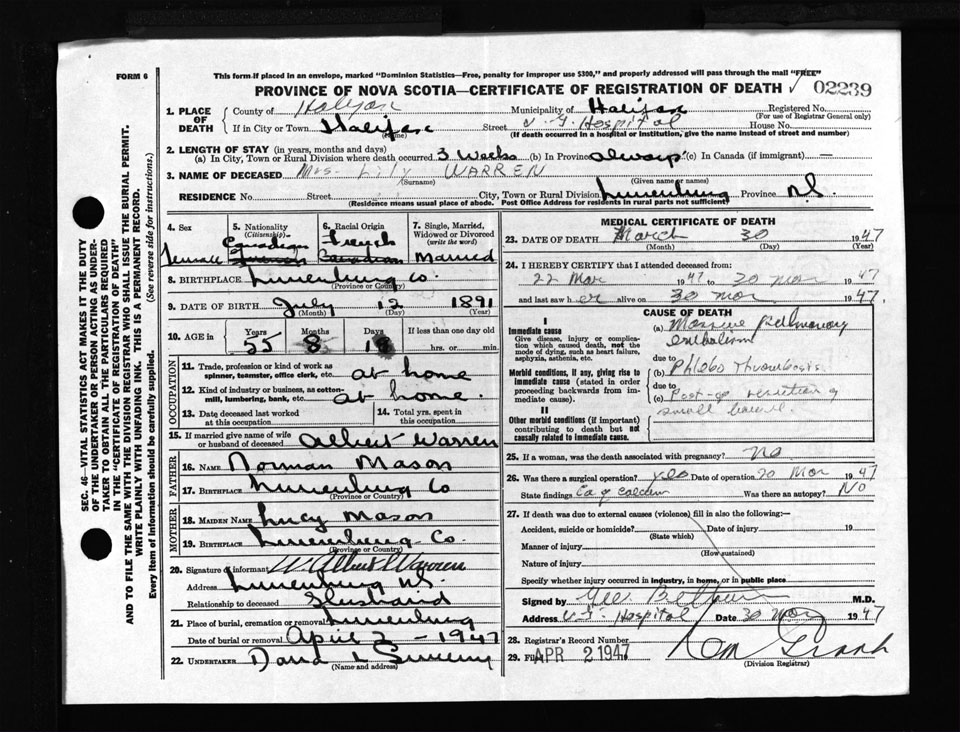 FORM 6
This form if placed in an envelope, marked "Dominion Statistics—Free, penalty for improper use $300," and properly addressed will pass through the mail "FREE"
PROVINCE OF NOVA SCOTIA—CERTIFICATE OF REGISTRATION OF DEATH 02239
1. PLACE OF DEATH County of Halifax Municipality of Halifax Registered No.
(For use of Registrar General only)
If in City or Town Halifax Street V. G. Hospital House No.
(Name) (If death occurred in a hospital or institution, give the name instead of street and number)
2. LENGTH OF STAY (in years, months and days)
(a) In City, Town or Rural Division where death occurred 3 Weeks (b) In Province always (c) In Canada (if immigrant) —
3. NAME OF DECEASED Mrs. Lily WARREN
(Surname) (Given name or names)
RESIDENCE No. Street City, Town or Rural Division Lunenburg Province N.S.
(Residence means usual place of abode. Post Office Address for residents in rural parts not sufficient)
SEC. 46—VITAL STATISTICS ACT MAKES IT THE DUTY
OF THE UNDERTAKER OR PERSON ACTING AS UNDER-
TAKER TO OBTAIN ALL THE PARTICULARS REQUIRED
IN THE "CERTIFICATE OF REGISTRATION OF DEATH"
AND TO FILE THE SAME WITH THE DIVISION REGISTRAR WHO SHALL ISSUE THE BURIAL PERMIT.
WRITE PLAINLY WITH UNFADING INK. THIS IS A PERMANENT RECORD.
Every item of information should be carefully supplied. (See reverse side for instructions.)
4. Sex 5. Nationality (Citizenship) 6. Racial Origin 7. Single, Married, Widowed or Divorced (write the word)
Female Canadian French Canadian Married
8. BIRTHPLACE Lunenburg Co.
(Province or County)
9. DATE OF BIRTH July 12 1891
(Month) (Day) (Year)
10. AGE in Years Months Days If less than one day old
55 8 18 hrs. or min.
OCCUPATION
11. Trade, profession or kind of work as spinner, teamster, office clerk, etc. at home
12. Kind of industry or business, as cotton-mill, lumbering, bank, etc. at home.
13. Date deceased last worked at this occupation 14. Total yrs. spent in this occupation
15. If married give name of wife or husband of deceased Albert Warren
FATHER
16. NAME Norman Mason
17. BIRTHPLACE Lunenburg Co
(Province or County)
MOTHER
18. MAIDEN NAME Lucy Mason
19. BIRTHPLACE Lunenburg Co.
(Province or Country)
20. Signature of informant W Albert Warren
Address Lunenburg N.S.
Relationship to deceased Husband
21. Place of burial, cremation or removal Lunenburg
Date of burial or removal April 2 – 1947
22. UNDERTAKER
(Name and address)
MEDICAL CERTIFICATE OF DEATH
23. DATE OF DEATH March 30 1947
(Month) (Day) (Year)
24. I HEREBY CERTIFY that I attended deceased from:
22 Mar 1947 to 30 Mar 1947
and last saw her alive on 30 Mar 1947.
CAUSE OF DEATH
I
Immediate cause
Give disease, injury or complication which caused death, not the mode of dying, such as heart failure, asphyxia, asthenia, etc.
(a) Massive Pulmonary embolism
due to
Morbid conditions, if any, giving rise to immediate cause (stated in order proceeding backwards from immediate cause).
(b) Phlebo Thrombosis
due to
(c) Post-op resection of small bowel.
II
Other morbid conditions (if important) contributing to death but not causally related to immediate cause.
25. If a woman, was the death associated with pregnancy? No
26. Was there a surgical operation? yes Date of operation 20 Mar 1947
State findings Ca of Was there an autopsy? No
27. If death was due to external causes (violence) fill in also the following:—
Accident, suicide or homicide? Date of injury 19
(State which)
Manner of injury
(How sustained)
Nature of injury
Specify whether injury occurred in industry, in home, or in public place
Signed by M.D.
Address V.G. Hospital Date 30 Mar 1947
28. Registrar's Record Number
29. Filed APR 2 1947
(Division Registrar)